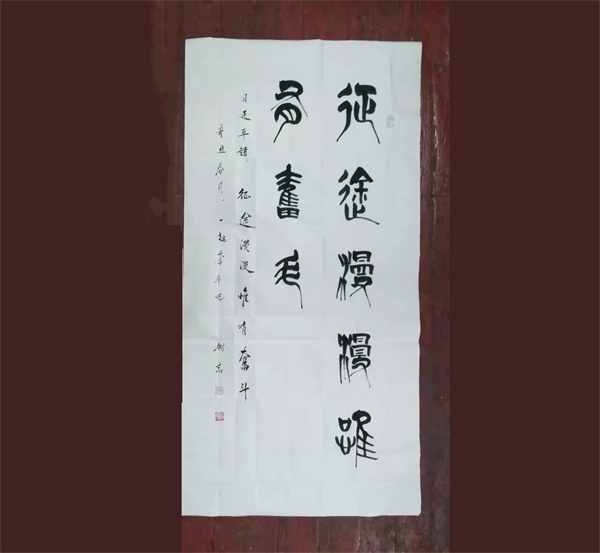 征途漫漫唯
有奋斗
习近平语，征途漫漫惟有奋斗
辛丑春月，一起奋斗吧